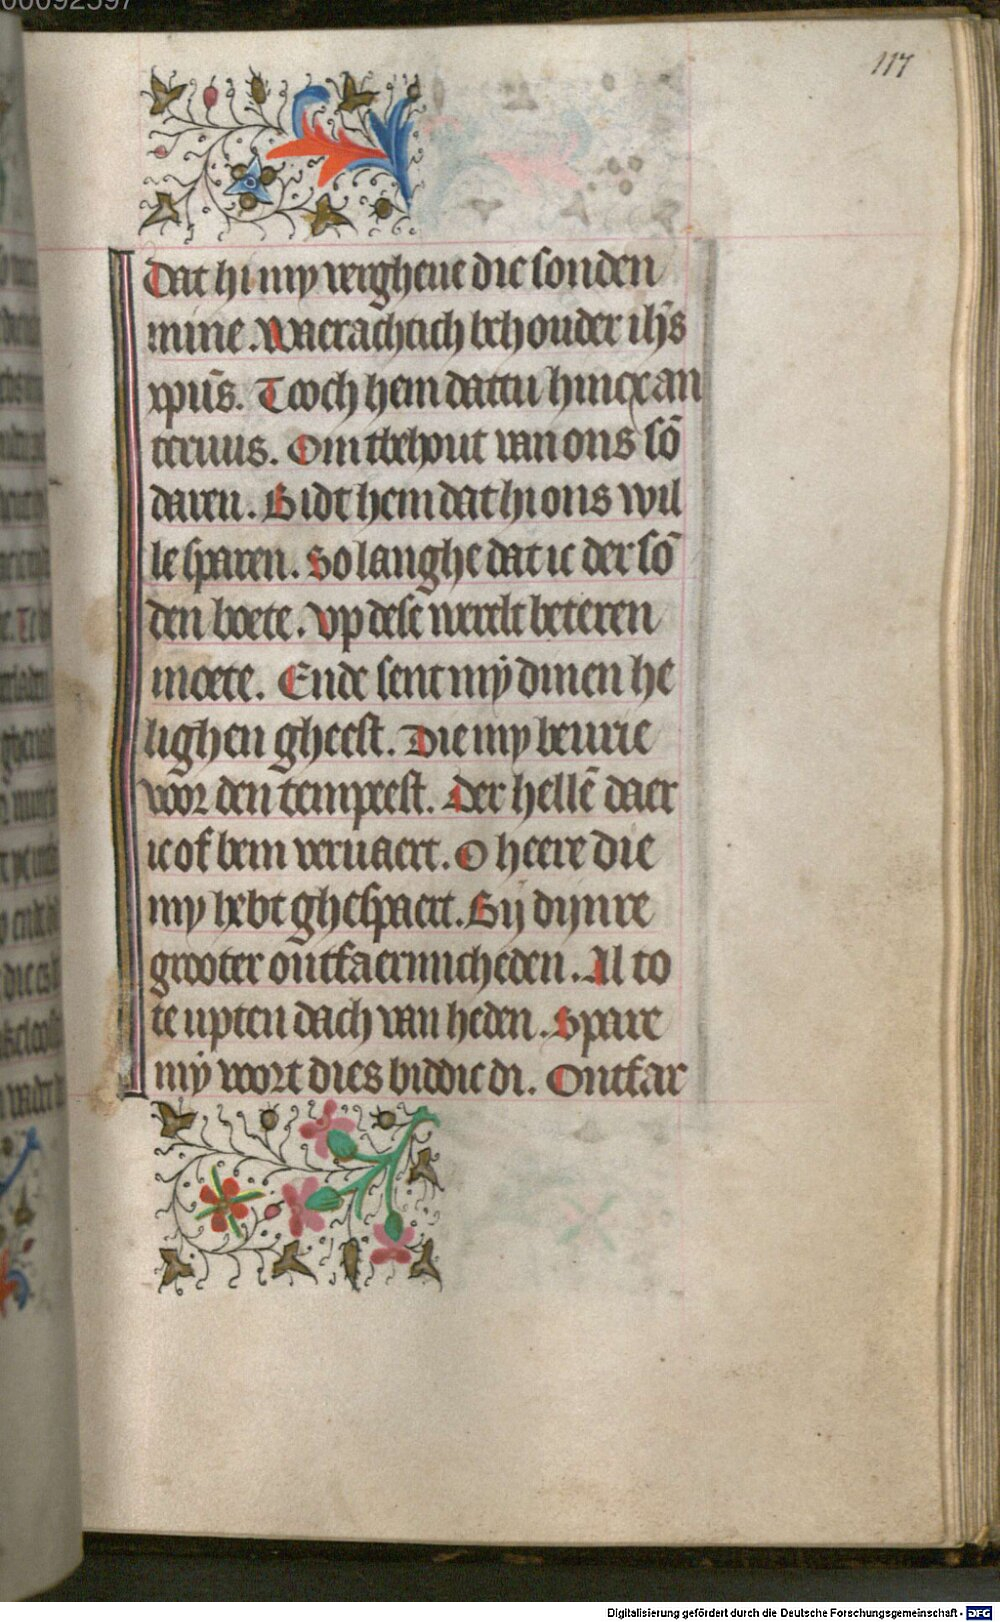 117
Dat hi my vergheue die sonden
mine. Waerachtich behouder ihs̄
xpūs. Tooch hem dattu hincx an
teruus. Om tbehout van ons sō
daren. Bidt hem dat hi ons wil
le sparen. So langhe dat ic der sō
den boete. Vp dese werelt beteren
moete. Ende sent mÿ dinen he
lighen gheest. Die my beurie
voor den tempeest. Der hellē daer
ic of bem veruaert. O heere die
my hebt ghespaert. Bÿ dynre
grooter ontfaermicheden. Al to
te upten dach van heden. Spare
mÿ voort dies biddic di. Ontfar
Digitalisierung gefördert durch die Deutsche Forschungsgemeinschaft - DFG